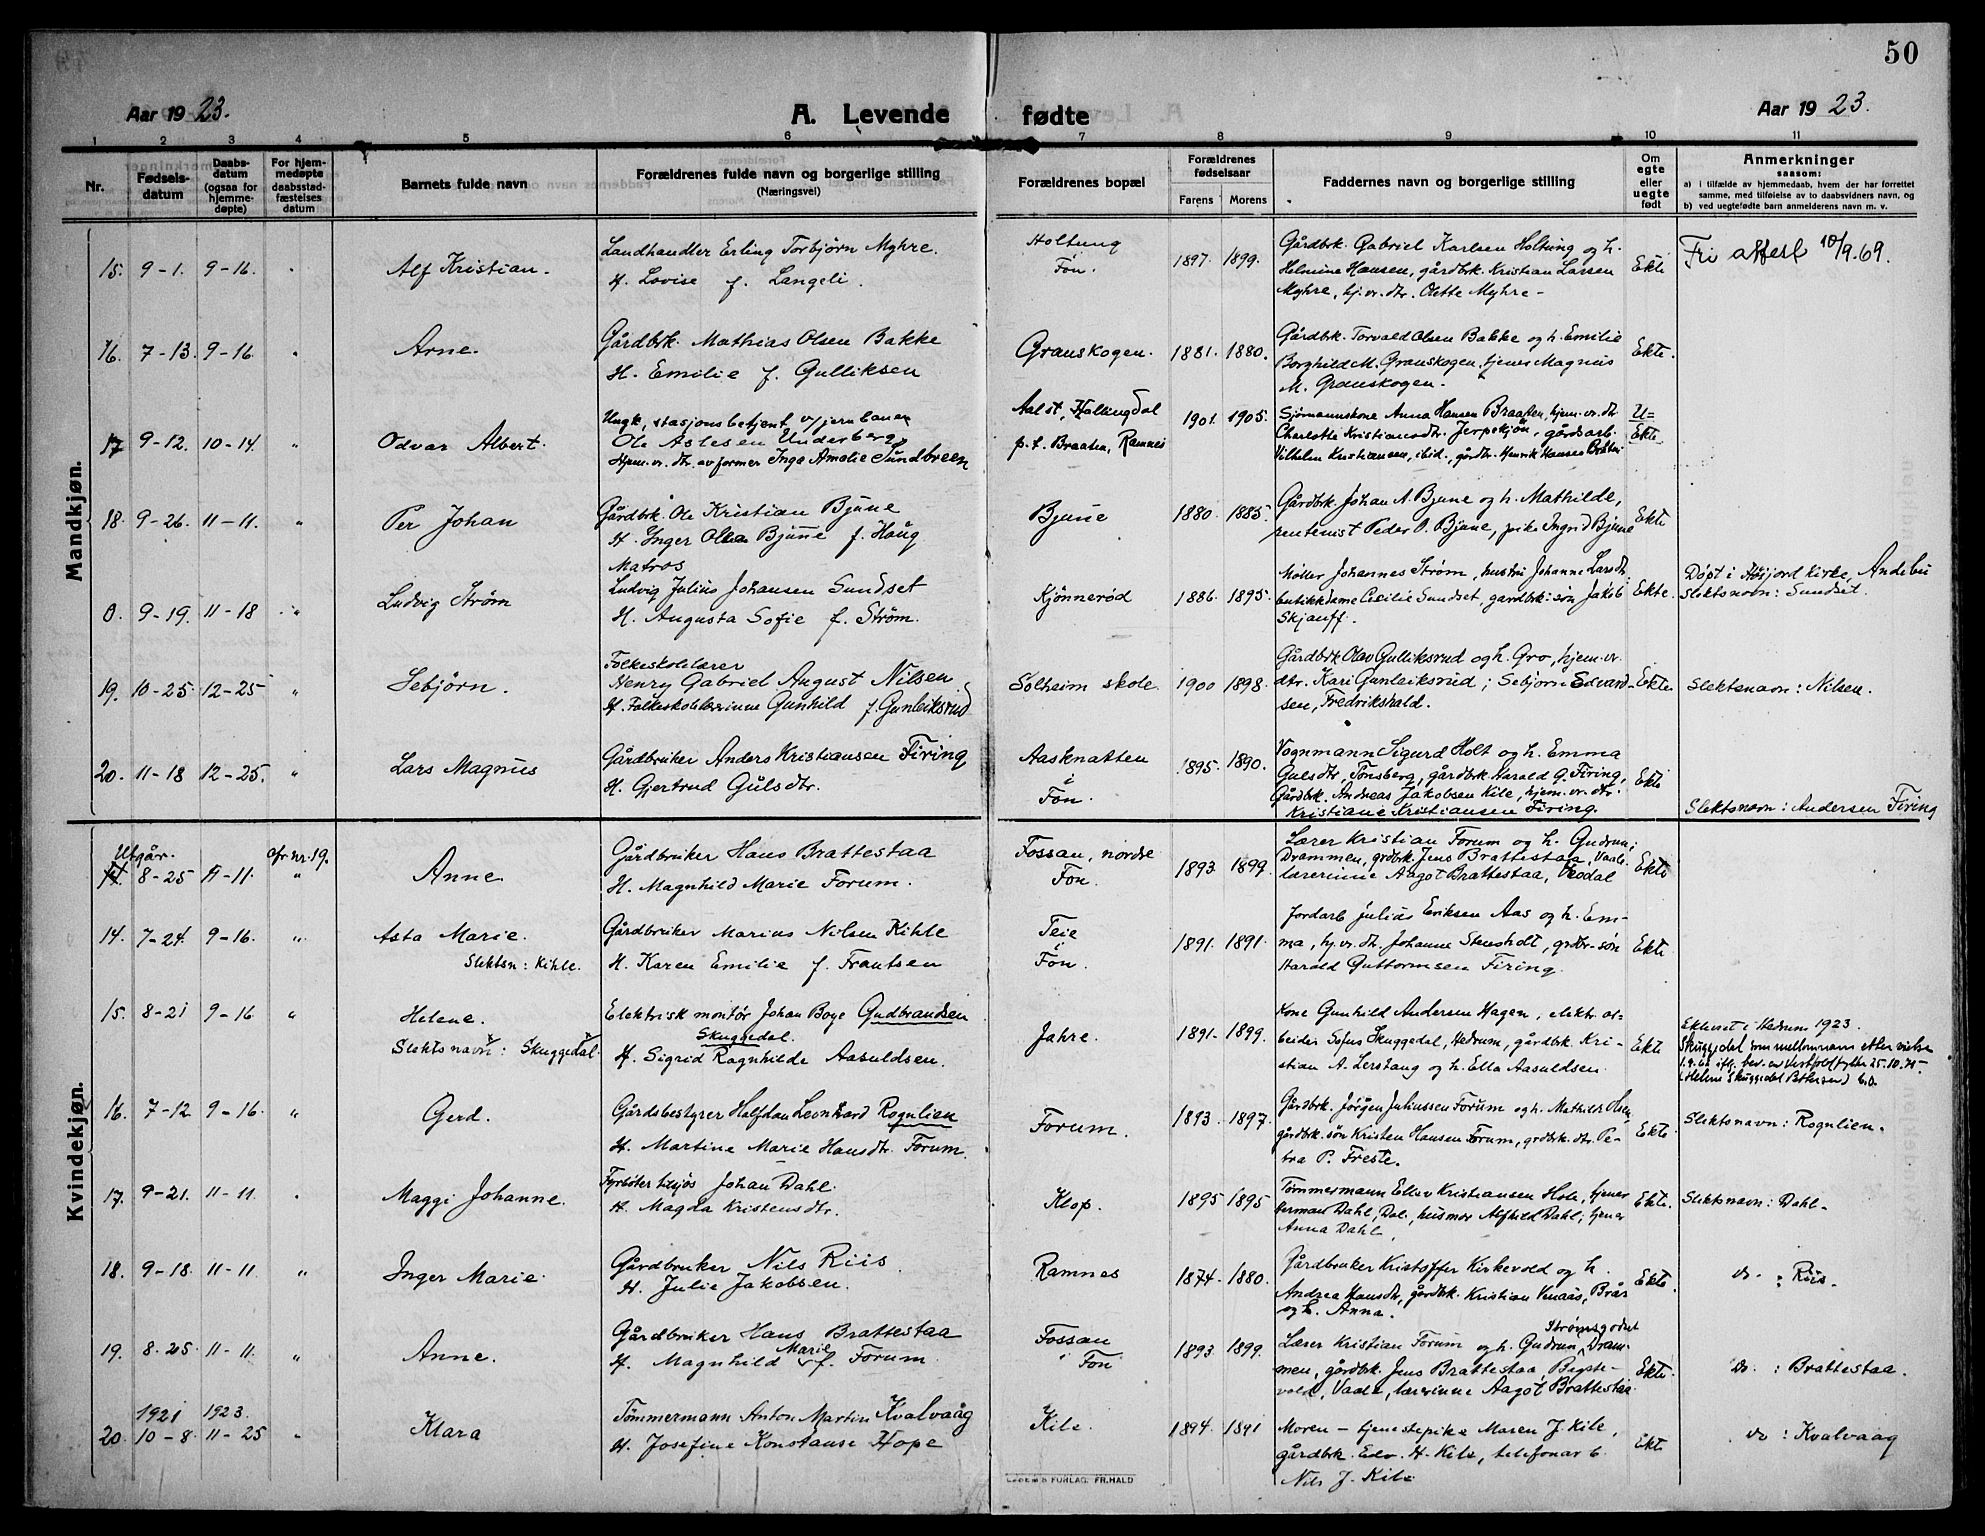 50
Aar 1923.
A. Levende fødte
Aar 1923.
1 2 3 4 5 6 7 8 9 10 11
Nr.
Fødsels-
datum
Daabs-
datum
(ogsaa for
hjemme-
døpte)
For hjem-
medøpte
daabsstad-
fæstelses
datum
Barnets fulde navn
Forældrenes fulde navn og borgerlige stilling
(Næringsvei)
Forældrenes bopæl
Forældrenes
fødselsaar
Farens Morens
Faddernes navn og borgerlige stilling
Om
egte
eller
uegte
født
Anmerkninger
saasom:
a) i tilfælde av hjemmedaab, hvem der har forrettet
samme, med tilføielse av to daabsvidners navn, og
b) ved uegtefødte barn anmelderens navn m. v.
Mandkjøn.
15. 9-1. 9-16. Alf Kristian.
Landhandler Erling Torbjørn Myhre.
H. Lovise f. Langeli.
Holtung
Fôn.
1897. 1899.
Gårdbrk. Gabriel Karlsen Holtung og h.
Helmine Hansen, gårdbrk. Kristian Larsen
Myhre, hj.vr.dtr. Olette Myhre-
Ekte
Fri attest 10/9.69.
16. 7-13. 9-16. " Arne.
Gårdbrk. Mathias Olsen Bakke
H. Emilie f. Gulliksen
Granskogen.
1881. 1880.
Gårdbrk. Torvald Olsen Bakke og h. Emilie
Borghild M. Granskogen, tjener Magnus
M. Granskogen.
Ekte.
17 9-12. 10-14. " Odvar Albert.
Ungk., stasjonsbetjent v/jernbanen
Ole Aslesen Underberg
Hjem.vr.dtr. av former Inga Amalie Sundbreen
Aal st., Hallingdal
p.t. Braaten, Ramnes
1901. 1905.
Sjømannskone Anna Hansen Braaten, hjem.vr.dtr.
Charlotte Kristiansdtr. Jerpekjøn, gårdsarb.
Vilhelm Kristiansen, ibid., gårdbr. Henrik Hansen
U=
Ekte
18. 9-26. 11-11. " Per Johan
Gårdbrk. Ole Kristian Bjune
H. Inger Olea Bjune f. Haug
Bjune
1880. 1885.
Gårdbrk. Johan A. Bjune og h. Mathilde,
rentenist Peder O. Bjune, pike Ingrid Bjune
Ekte
0. 9-19. 11-18 " Ludvig Strøm
Matros
Ludvig Julius Johansen Sundset
H. Augusta Sofie f. Strøm.
Kjønnerød
1886. 1895.
Møller Johannes Strøm, hustru Johanne Larsdtr.
butikkdame Cecilie Sundset, gardbrk:søn Jakob
Skjauff.
Ekte.
Døpt i Høijord Kirke, Andebu
Slektsnavn: Sundset.
19. 10-25. 12-25 " Sebjörn.
Folkeskolelærer
Henry Gabriel August Nilsen
H. Folkeskolelærerinne Gunhild f. Gunleiksrud
Solheim skole
1900 1898.
Gårdbrk Olav Gulliksrud og h. Gro, hjem.vr.
dtr. Kari Gunleiksrud; Sebjørn Edvard-
sen, Fredrikshald.
Ekte
Slektsnavn: Nilsen.
20. 11-18 12-25. " Lars Magnus
Gårdbruker Anders Kristiansen Firing
H. Gjertrud Gulsdtr.
Aasknatten
i
Fôn.
1895. 1890.
Vognmann Sigurd Holt og h. Emma
Gulsdtr, Tønsberg, gårdbrk Harald G. Firing,
Gårdbrk. Andreas Jakobsen Kile, hjem.vr.dtr.
Kristiane Kristiansen Firing.
Ekte
Slektsnavn: Andersen Firing
Kvindekjøn.
Utgår. cfr nr. 19.
8-25 11-11. " Anne
Gårdbruker Hans Brattestaa
H. Magnhild Marie Forum.
Fossan, nordre
Fôn.
1893 1899.
Lærer Kristian Forum og h. Gudrun;
Drammen, grdbrk. Jens Brattestaa, Vaale.
lærerinne Aagot Brattestaa,
Ekte
14. 7-24. 9-16. " Asta Marie.
Slektsn: Kihle.
Gårdbruker Marius Nilsen Kihle
H. Karen Emilie f. Frantsen
Teie
Fôn.
1891. 1891.
Jordarb Julius Eriksen Aas og h. Em-
ma, hj.vr.dtr. Johanne Stensholt, grdbr-søn
Harald Guttormsen Firing.
Ekte
15. 8-21 9-16 " Helene.
Slektsnavn: Skuggedal
Elektrisk montør Johan Boye Gudbrandsen
Skuggedal.
H. Sigrid Ragnhilde Aasuldsen.
Jahre.
1891- 1899.
Kone Gunhild Andersen Hagen, elektr. ar-
beider Sofus Skuggedal, Hedrum, gårdbrk. Kri-
stian A. Lerstang og h. Ella Aasuldsen
Ekte
Ekteviet i Hedrum 1923.
Skuggedal som mellomnavn etter vielse
16. 7-12. 9-16. " Gerd.
Gårdsbestyrer Halfdan Leonhard Rognlien
H. Martine Marie Hansdtr. Forum.
Forum.
1893. 1897.
Gårdbrk. Jørgen Juliussen Forum og h. Mathilde Olsen,
gårdbrk. søn Kristen Hansen Forum, grdbrk. dtr. Pe-
tra P. Freste.
Ekte.
Slektsnavn: Rognlien.
17. 9-21. 11-11. Maggi Johanne.
Fyrbøter Johan Dahl.
H. Magda Kristensdtr.
Klop.
1895 1895
Tømmermann Ellev Kristiansen Hole, tjener
Herman Dahl, Dal., husmor Alfhild Dahl, tjener
Anna Dahl.
Ekte.
Slektsnavn: Dahl.
18. 9-18. 11-11. " Inger Marie.
Gårdbruker Nils Riis.
H. Julie Jakobsen.
Ramnes
1874- 1880.
Gårdbruker Kristoffer Kirkevold og h.
Andrea Hansdtr, gårdbrk. Kristian Venaas, Brår
og h. Anna.
Ekte.
do. : Riis.
19. 8-25. 11-11. " Anne.
Gårdbruker Hans Brattestaa
H. Magnhild Marie f. Forum.
Fossan
i Fôn
1893. 1899.
Strømsgodset
Lærer Kristian Forum og h. Gudrun, Dram-
men, gårdbrk. Jens Brattestaa, Bagste-
vold, Vaale, lærerinne Aagot Brattestaa.
Ekte.
do. : Brattestaa.
1921 1923.
20. 10-8. 11-25 " Klara
Tømmermann Anton Martin Kvalvaag
H. Josefine Konstanse Hope
Kile.
1894. 1891
Moren - tjenestepike Maren J. Kile,
gårdbrk. Edv. H. Kile, telefonarb.
Nils J. Kile
Ekte
do : Kvalvaag
FORLAG. FR.HALD